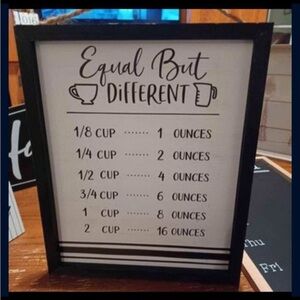 Equal But
DIFFERENT
1/8 CUP ······· 1 OUNCES
1/4 CUP ······ 2 OUNCES
1/2 CUP ······ 4 OUNCES
3/4 CUP ······ 6 OUNCES
1 CUP ······ 8 OUNCES
2 CUP ······ 16 OUNCES
Fri